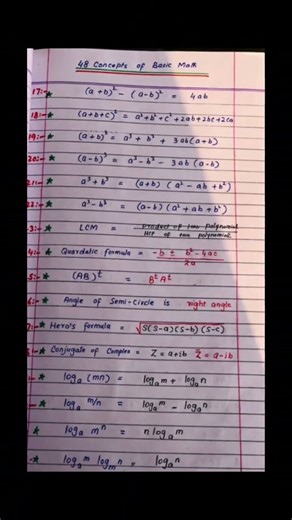 48 Concepts of Basic Math
17:- ★ (a+b)² - (a-b)² = 4ab
18:- ★ (a+b+c)² = a²+b²+c²+2ab+2bc+2ca
19:- ★ (a+b)³ = a³ + b³ + 3ab(a+b)
20:- ★ (a-b)³ = a³ - b³ - 3ab (a-b)
21:- ★ a³+b³ = (a+b) (a² - ab + b²)
22:- ★ a³ - b³ = (a-b) (a² + ab + b²)
3:- ★ LCM = Product of two polynomial / HCF of two polynomial
4:- ★ Quardatic formula = -b ± b² - 4ac / 2a
5:- ★ (AB)ᵗ = BᵗAᵗ
6:- ★ Angle of Semi-Circle is right angle
7:- ★ Hero's formula = √S(S-a)(S-b)(S-c)
★ Conjugate of Complex = Z = a+ib Z̄ = a-ib
★ logₐ (mn) = logₐm + logₐn
★ logₐ m/n = logₐm - logₐn
★ logₐ mⁿ = n logₐm
★ logₐm logₘn = logₐn